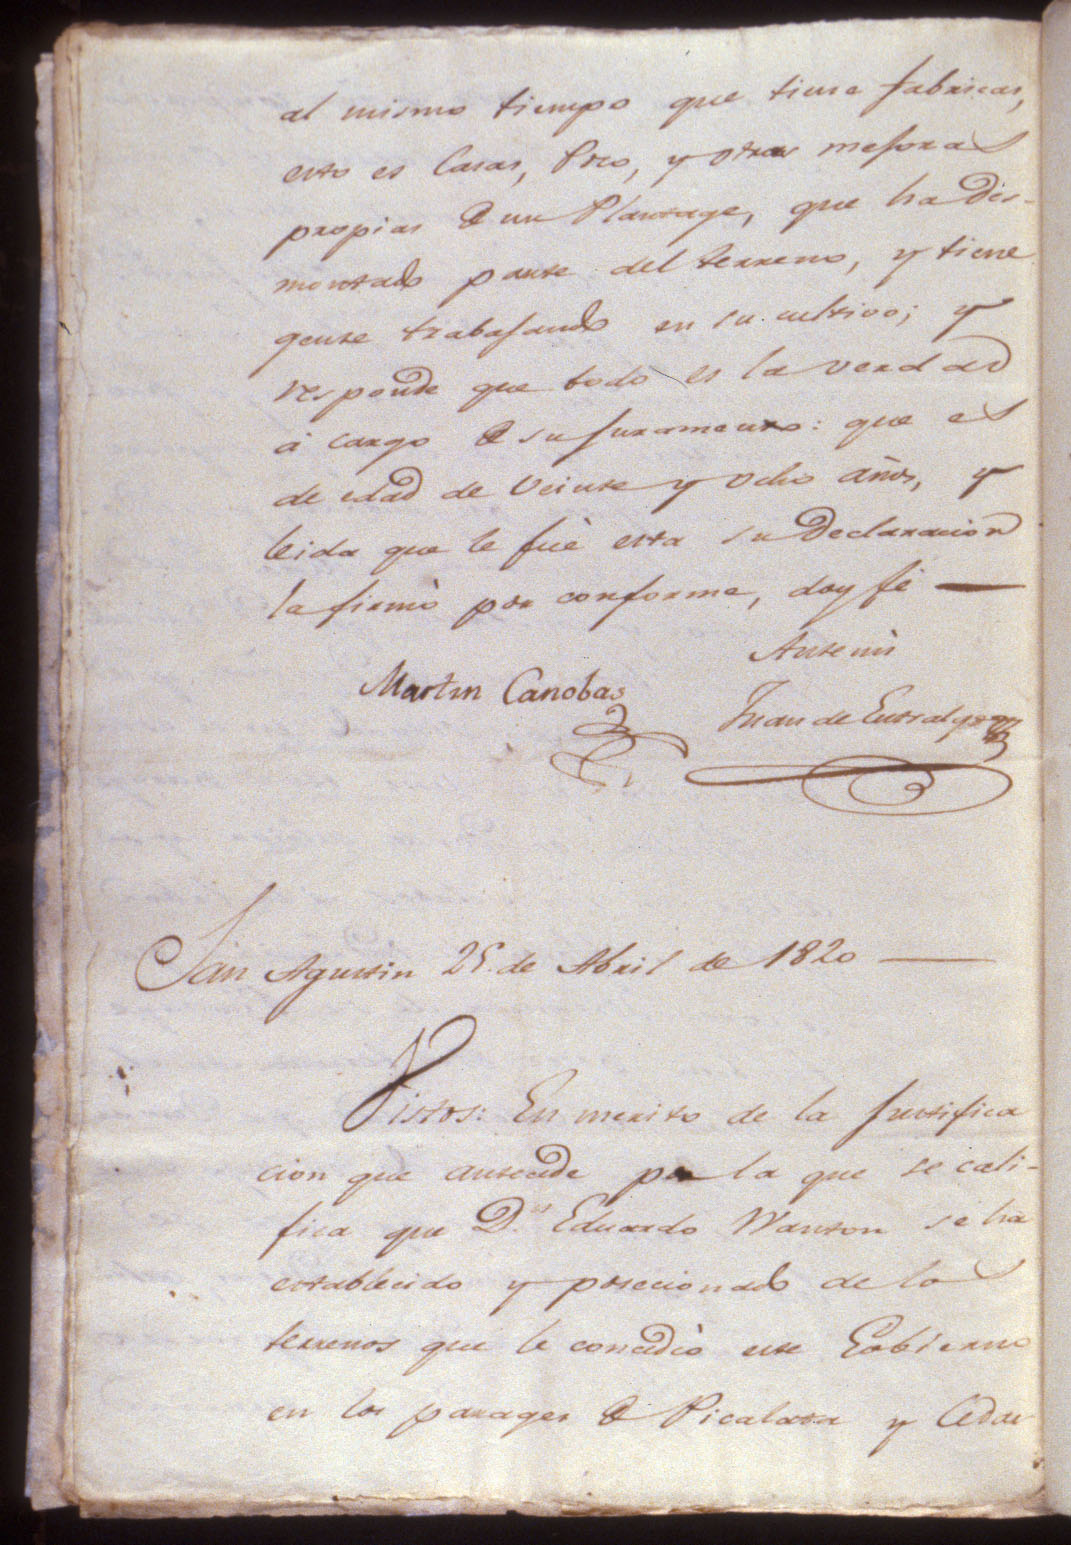 al mismo tiempo que tiene fabricas,
esto es Casas, Pozo, y otras mejoras
propias de un Plantage, que ha des-
montado parte del terreno, y tiene
gente trabajando en su cultivo; y
responde que todo es la verdad
á cargo de su juramento: que es
de edad de Veinte y Ocho años, y
leida que le fué esta su Declaracion
la firmò por conforme, doy fé —
Antemi
Martin Canobas
Juan de Entralgo
San Agustin 25. de Abril de 1820 —
Vistos: En merito de la justifica
cion que antecede por la que se cali-
fica que D.n Eduardo Wanton se ha
establecido y posecionado de los
terrenos que le concediò este Gobierno
en los parages de Picalata y Cedar